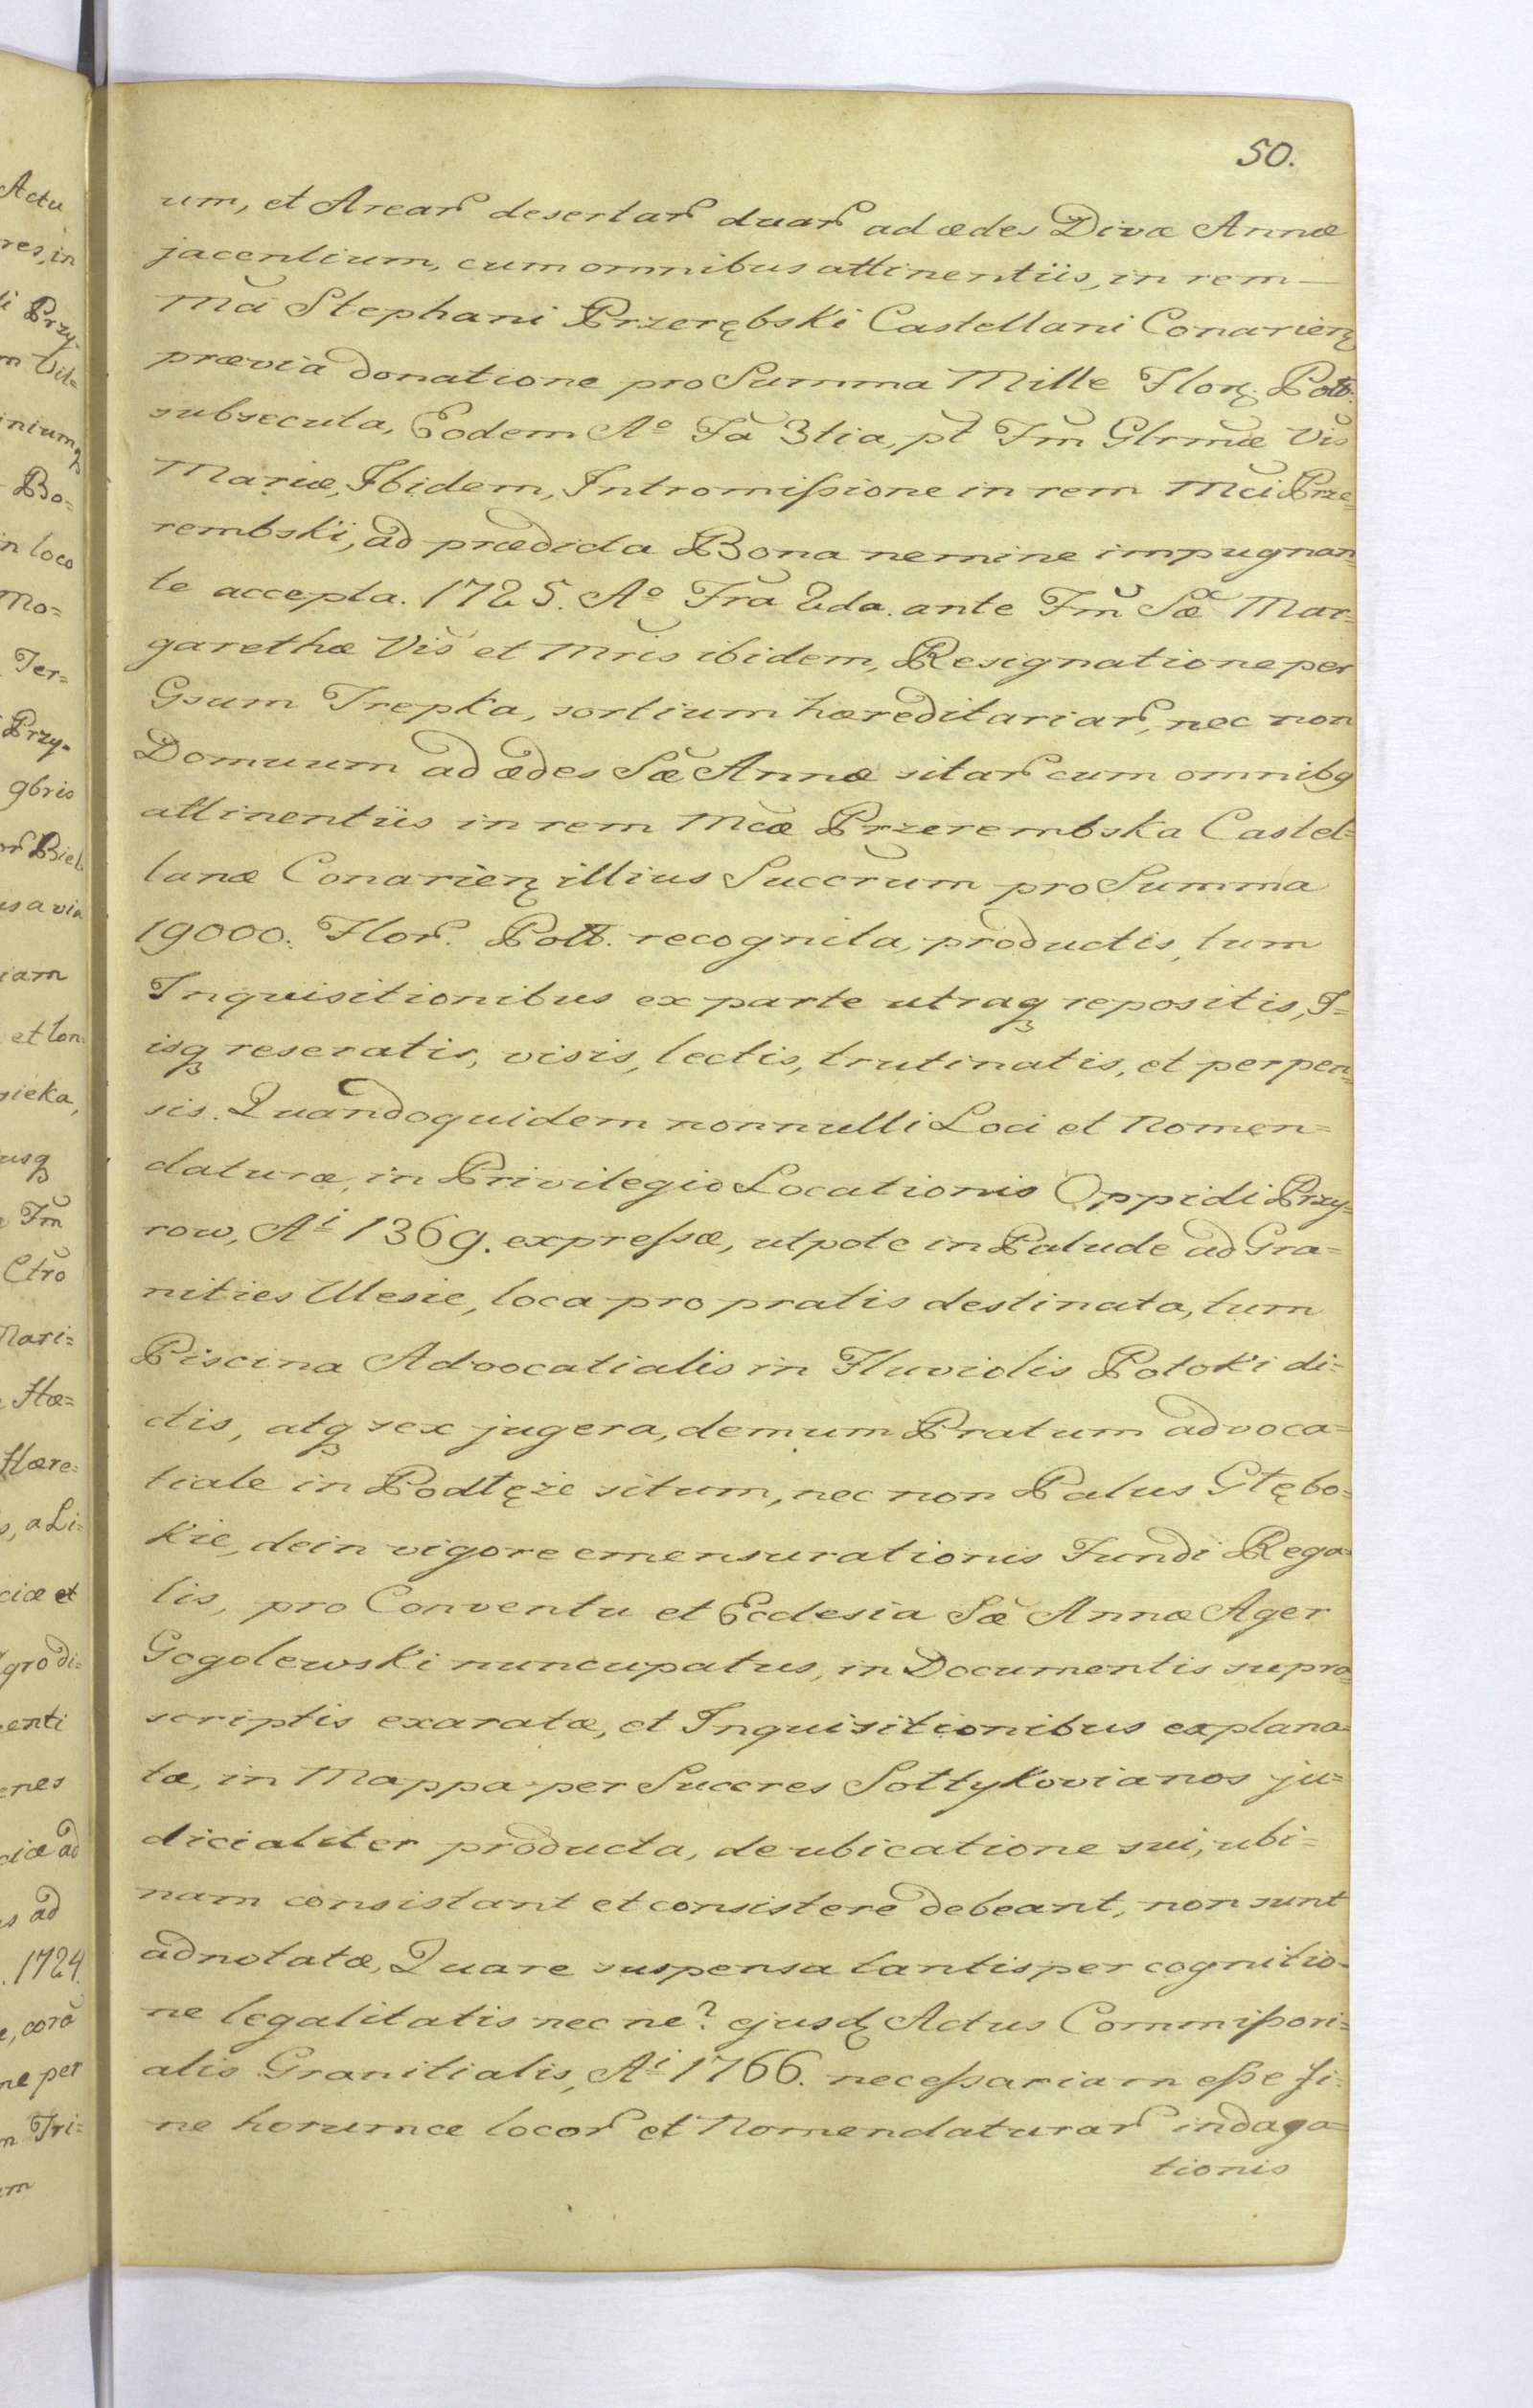 50.
um, et Arear desertar duar ad ædes Divæ Annæ
jacentium, cum omnibus attinentiis, in rem —
Mci Stephani Przerębski Castellani Conarien
prævia donatione pro Summa Mille Flor. Poll.
subsecuta, Eodem Aº Fa 3tia, pt Fm Glrmæ Vis
Mariæ, Ibidem, Intromissione in rem Mci Prze=
rembski, ad prædicta Bona nemine impugnan=
te accepta. 1725. Aº Fra 2da. ante Fm Sæ Mar=
garethæ Vis et Mris ibidem, Resignatione per
Gsum Trepka, sortium hæreditariar, nec non
Domuum ad ædes Sæ Annæ sitar cum omnibg
attinentiis in rem Mcæ Przerembska Castel=
lanæ Conarien illius Succrum pro Summa
19000. Flor. Poll. recognita, productis, tum
Inquisitionibus ex parte utraq repositis, I=
isq reseratis, visis, lectis, trutinatis, et perpen=
sis. Quandoquidem nonnulli Loci et Nomen=
claturæ, in Privilegio Locationis Oppidi Przy=
row, Ai 1369. expressæ, utpote in Palude ad Gra=
nities Ulesie, loca pro pratis destinata, tum
Piscina Advocatialis in Fluviolis Potoki di=
ctis, atq sex jugera, demum Pratum advoca=
tiale in Podłęże situm, nec non Palus Głębo=
kie, dein vigore emensurationis Fundi Rega=
lis, pro Conventu et Ecclesia Sæ Annæ Ager
Gogolewski nuncupatus, in Documentis supra=
scriptis exaratæ, et Inquisitionibus explana=
tæ, in Mappa per Succres Sołtykovianos ju=
dicialiter producta, de ubicatione sui, ubi=
nam consistant et consistere debeant, non sunt
adnotatæ, Quare suspensa tantisper cognitio=
ne legalitatis nec ne? ejusd Actus Commissori=
alis Granitialis, Ai 1766. necessariam esse fi=
ne horumce locor et Nomenclaturar indaga=
tionis